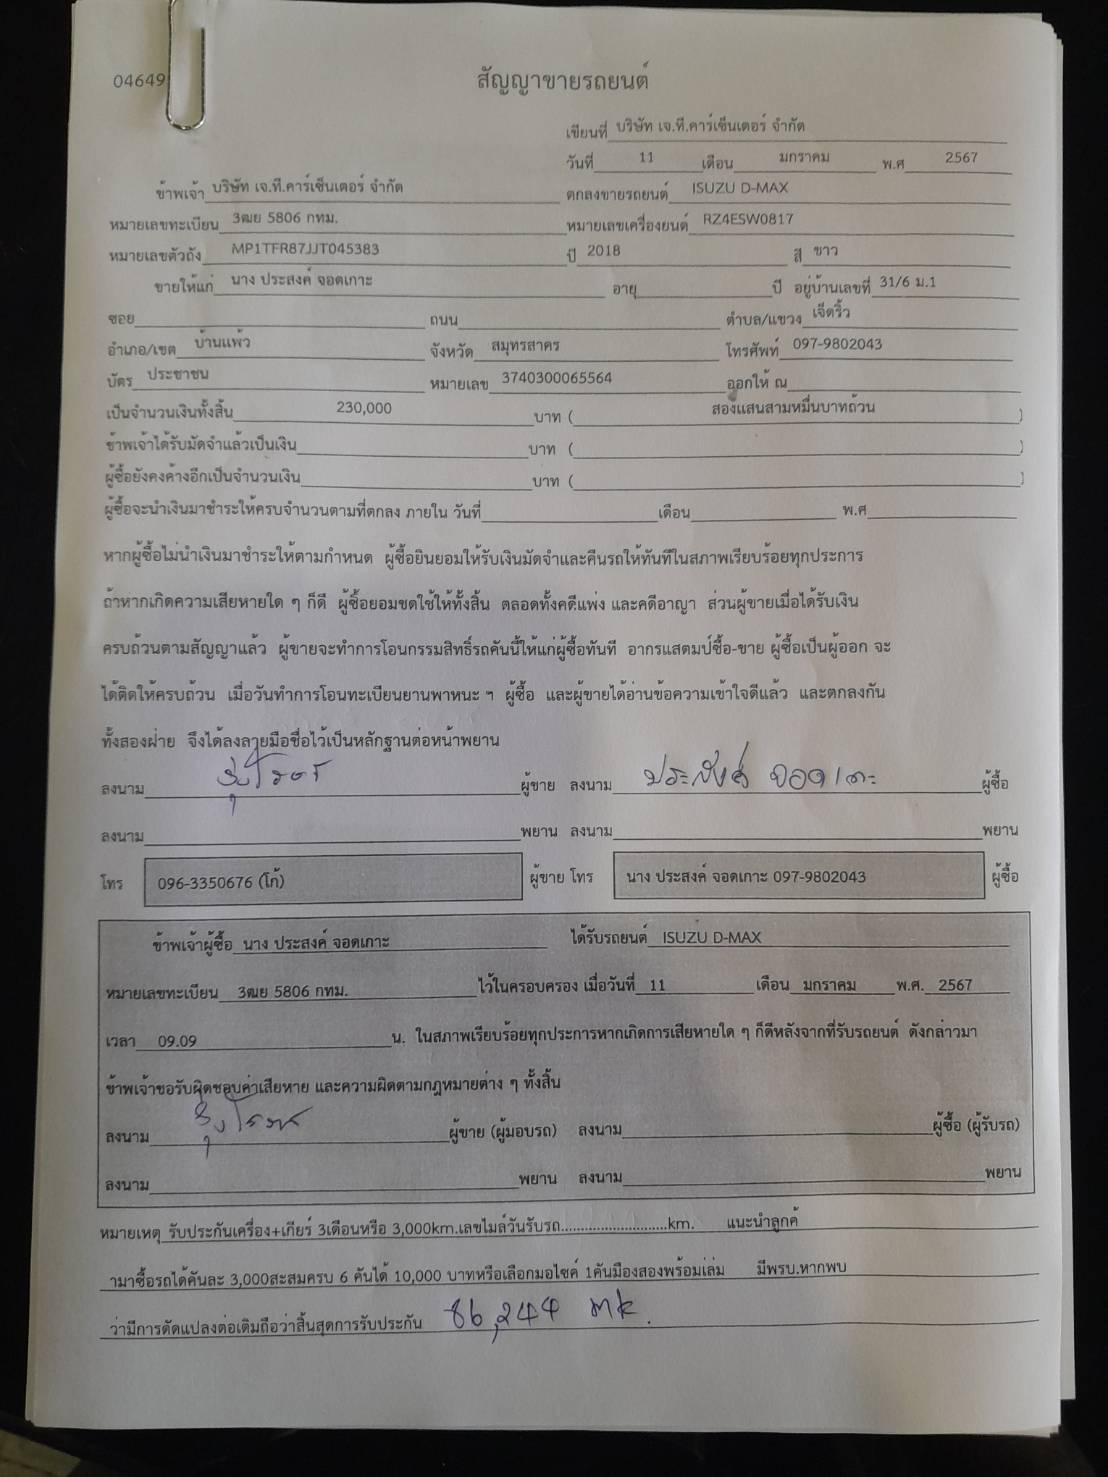 04649
สัญญาขายรถยนต์
เขียนที่ บริษัท เจ.ที.คาร์เซ็นเตอร์ จำกัด
วันที่ 11 เดือน มกราคม พ.ศ 2567
ข้าพเจ้า บริษัท เจ.ที.คาร์เซ็นเตอร์ จำกัด ตกลงขายรถยนต์ ISUZU D-MAX
หมายเลขทะเบียน 3ฒย 5806 กทม. หมายเลขเครื่องยนต์ RZ4ESW0817
หมายเลขตัวถัง MP1TFR87JJT045383 ปี 2018 สี ขาว
ขายให้แก่ นาง ประสงค์ จอดเกาะ อายุ ปี อยู่บ้านเลขที่ 31/6 ม.1
ซอย ถนน ตำบล/แขวง เจ็ดริ้ว
อำเภอ/เขต บ้านแพ้ว จังหวัด สมุทรสาคร โทรศัพท์ 097-9802043
บัตร ประชาชน หมายเลข 3740300065564 ออกให้ ณ
เป็นจำนวนเงินทั้งสิ้น 230,000 บาท ( สองแสนสามหมื่นบาทถ้วน )
ข้าพเจ้าได้รับมัดจำแล้วเป็นเงิน บาท ( )
ผู้ซื้อยังคงค้างอีกเป็นจำนวนเงิน บาท ( )
ผู้ซื้อจะนำเงินมาชำระให้ครบจำนวนตามที่ตกลง ภายใน วันที่ เดือน พ.ศ
หากผู้ซื้อไม่นำเงินมาชำระให้ตามกำหนด ผู้ซื้อยินยอมให้รับเงินมัดจำและคืนรถให้ทันทีในสภาพเรียบร้อยทุกประการ
ถ้าหากเกิดความเสียหายใด ๆ ก็ดี ผู้ซื้อยอมชดใช้ให้ทั้งสิ้น ตลอดทั้งคดีแพ่ง และคดีอาญา ส่วนผู้ขายเมื่อได้รับเงิน
ครบถ้วนตามสัญญาแล้ว ผู้ขายจะทำการโอนกรรมสิทธิ์รถคันนี้ให้แก่ผู้ซื้อทันที อากรแสตมป์ซื้อ-ขาย ผู้ซื้อเป็นผู้ออก จะ
ได้ติดให้ครบถ้วน เมื่อวันทำการโอนทะเบียนยานพาหนะ ฯ ผู้ซื้อ และผู้ขายได้อ่านข้อความเข้าใจดีแล้ว และตกลงกัน
ทั้งสองฝ่าย จึงได้ลงลายมือชื่อไว้เป็นหลักฐานต่อหน้าพยาน
ลงนาม ผู้ขาย ลงนาม ประสงค์ จอดเกาะ ผู้ซื้อ
ลงนาม พยาน ลงนาม พยาน
โทร 096-3350676 (โก้) ผู้ขาย โทร นาง ประสงค์ จอดเกาะ 097-9802043 ผู้ซื้อ
ข้าพเจ้าผู้ซื้อ นาง ประสงค์ จอดเกาะ ได้รับรถยนต์ ISUZU D-MAX
หมายเลขทะเบียน 3ฒย 5806 กทม. ไว้ในครอบครอง เมื่อวันที่ 11 เดือน มกราคม พ.ศ. 2567
เวลา 09.09 น. ในสภาพเรียบร้อยทุกประการหากเกิดการเสียหายใด ๆ ก็ดีหลังจากที่รับรถยนต์ ดังกล่าวมา
ข้าพเจ้าขอรับผิดชอบค่าเสียหาย และความผิดตามกฎหมายต่าง ๆ ทั้งสิ้น
ลงนาม ผู้ขาย (ผู้มอบรถ) ลงนาม ผู้ซื้อ (ผู้รับรถ)
ลงนาม พยาน ลงนาม พยาน
หมายเหตุ รับประกันเครื่อง+เกียร์ 3เดือนหรือ 3,000km.เลขไมล์วันรับรถ...........................km. แนะนำลูกค้
ามาซื้อรถได้คันละ 3,000สะสมครบ 6 คันได้ 10,000 บาทหรือเลือกมอไซค์ 1คันมืองสองพร้อมเล่ม มีพรบ.หากพบ
ว่ามีการดัดแปลงต่อเติมถือว่าสิ้นสุดการรับประกัน 86,244